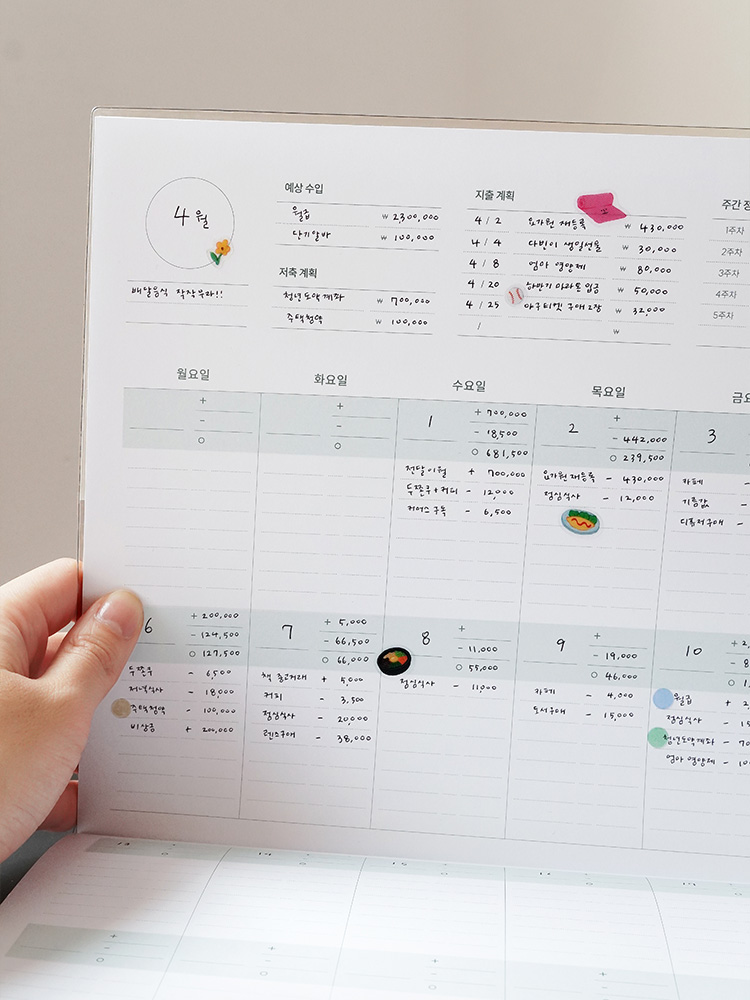 4월
배달음식 작작무라!!
예상 수입
월급 ₩ 2300,000
단기알바 ₩ 100,000
저축 계획
청년도약계좌 ₩ 700,000
주택청약 ₩ 100,000
지출 계획
4 / 2 요가원 재등록 ₩ 430,000
4 / 4 다빈이 생일선물 ₩ 30,000
4 / 8 엄마 영양제 ₩ 80,000
4 / 20 하반기 마라톤 입금 ₩ 50,000
4 / 25 야구티켓 구매 2장 ₩ 32,000
/ ₩
주간 정
1주차
2주차
3주차
4주차
5주차
월요일 화요일 수요일 목요일 금요
+
-
○
+
-
○
1
+ 700,000
- 18,500
○ 681,500
전달이월 + 700,000
두쫀쿠+커피 - 12,000
- 6,500
2
+
- 442,000
○ 239,500
요가원 재등록 - 430,000
점심식사 - 12,000
3
카페 -
기름값 -
디퓨저구매 -
6
+ 200,000
- 124,500
○ 127,500
두쫀쿠 - 6,500
저녁식사 - 18,000
주택청약 - 100,000
비상금 + 200,000
7
+ 5,000
- 66,500
○ 66,000
책 중고거래 + 5,000
커피 - 3,500
점심식사 - 20,000
렌즈구매 - 38,000
8
+
- 11,000
○ 55,000
점심식사 - 11,000
9
+
- 19,000
○ 46,000
카페 - 4,000
도서구매 - 15,000
10
+ 2,
- 8
○ 1,
월급 + 2
점심식사 - 15
청년도약계좌 - 70
엄마 영양제 - 10
13 14 15
+
-
○
+
-
○
+
-
○
+
-
○